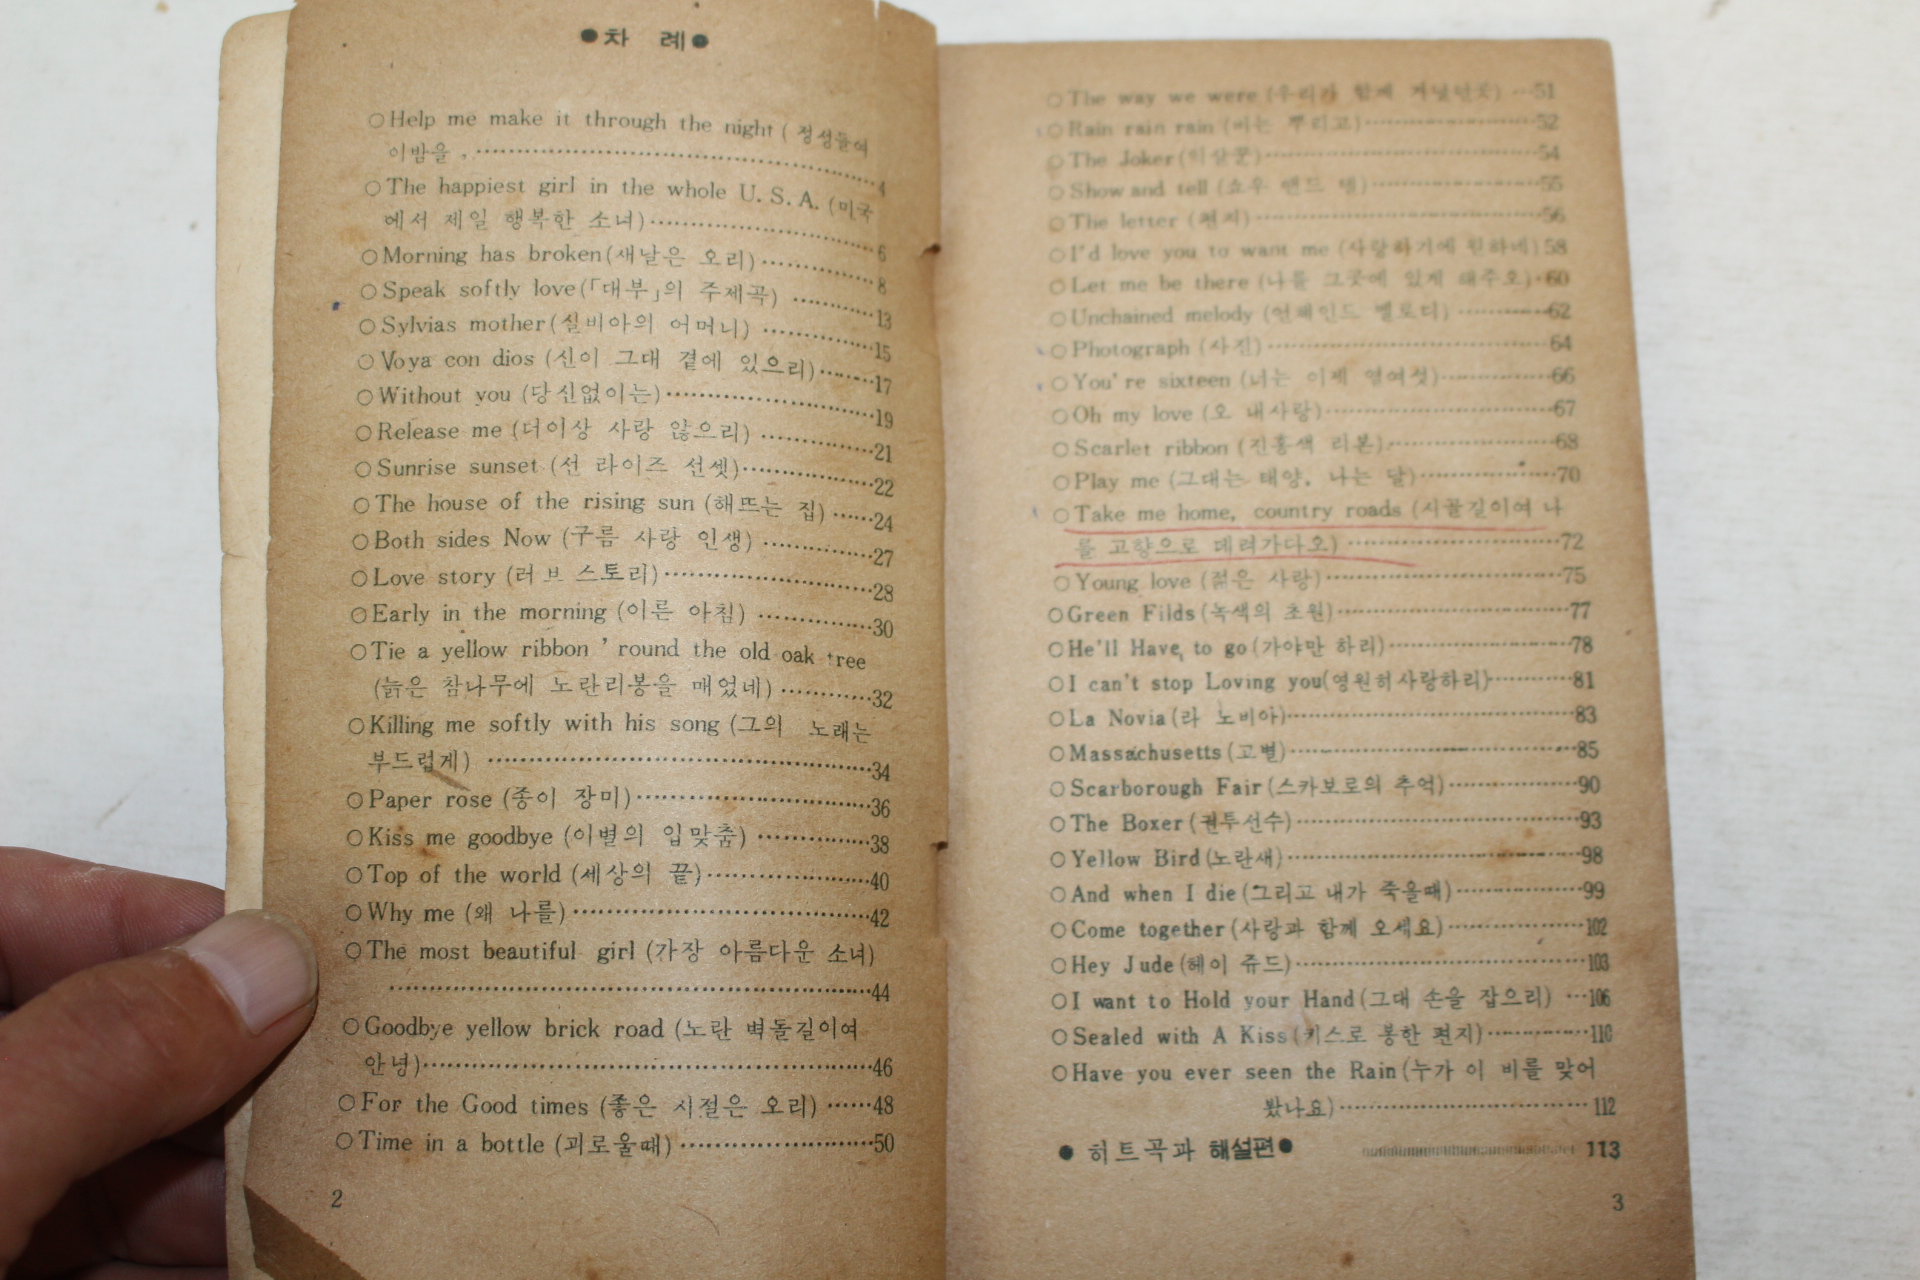 ●차 례●
○Help me make it through the night ( 정성들여
이밤을 , ……4
○The happiest girl in the whole U. S. A. (미국
에서 제일 행복한 소녀)……6
○Morning has broken(새날은 오리)……8
○Speak softly love(「대부」의 주제곡) ……13
○Sylvias mother(실비아의 어머니) ……15
○Voya con dios (신이 그대 곁에 있으리)……17
○Without you (당신없이는)……19
○Release me (더이상 사랑 않으리) ……21
○Sunrise sunset (선 라이즈 선셋)……22
○The house of the rising sun (해뜨는 집) ……24
○Both sides Now (구름 사랑 인생) ……27
○Love story (러브 스토리)……28
○Early in the morning (이른 아침) ……30
○Tie a yellow ribbon ’ round the old oak tree
(늙은 참나무에 노란리봉을 매었네) ……32
○Killing me softly with his song (그의 노래는
부드럽게) ……34
○Paper rose (종이 장미)……36
○Kiss me goodbye (이별의 입맞춤) ……38
○Top of the world (세상의 끝)……40
○Why me (왜 나를) ……42
○The most beautiful girl (가장 아름다운 소녀)
……44
○Goodbye yellow brick road (노란 벽돌길이여
안녕)……46
○For the Good times (좋은 시절은 오리) ……48
○Time in a bottle (괴로울때) ……50
2
○The way we were (우리가 함께 거닐던곳) …51
○Rain rain rain (비는 뿌리고)……52
○The Joker(익살꾼)……54
○Show and tell (쇼우 앤드 텔)……55
○The letter (편지)……56
○I'd love you to want me (사랑하기에 원하네)58
○Let me be there (나를 그곳에 있게 해주오)·60
○Unchained melody (언체인드 멜로디) ……62
○Photograph (사진)……64
○You're sixteen (너는 이제 열여섯)……66
○Oh my love (오 내사랑)……67
○Scarlet ribbon (진홍색 리본)……68
○Play me (그대는 태양, 나는 달)……70
○Take me home, country roads (시골길이여 나
를 고향으로 데려가다오) ……72
○Young love (젊은 사랑)……75
○Green Filds(녹색의 초원)……77
○He'll Have, to go(가야만 하리)……78
○I can't stop Loving you(영원히사랑하리)……81
○La Novia(라 노비아)……83
○Massachusetts(고별)……85
○Scarborough Fair(스카보로의 추억)……90
○The Boxer(권투선수)……93
○Yellow Bird(노란새)……98
○And when I die(그리고 내가 죽을때)……99
○Come together(사랑과 함께 오세요)……102
○Hey Jude(헤이 쥬드)……103
○I want to Hold your Hand(그대 손을 잡으리) …106
○Sealed with A Kiss(키스로 봉한 편지)……110
○Have you ever seen the Rain(누가 이 비를 맞어
봤나요)……112
● 히트곡과 해설편● ……113
3